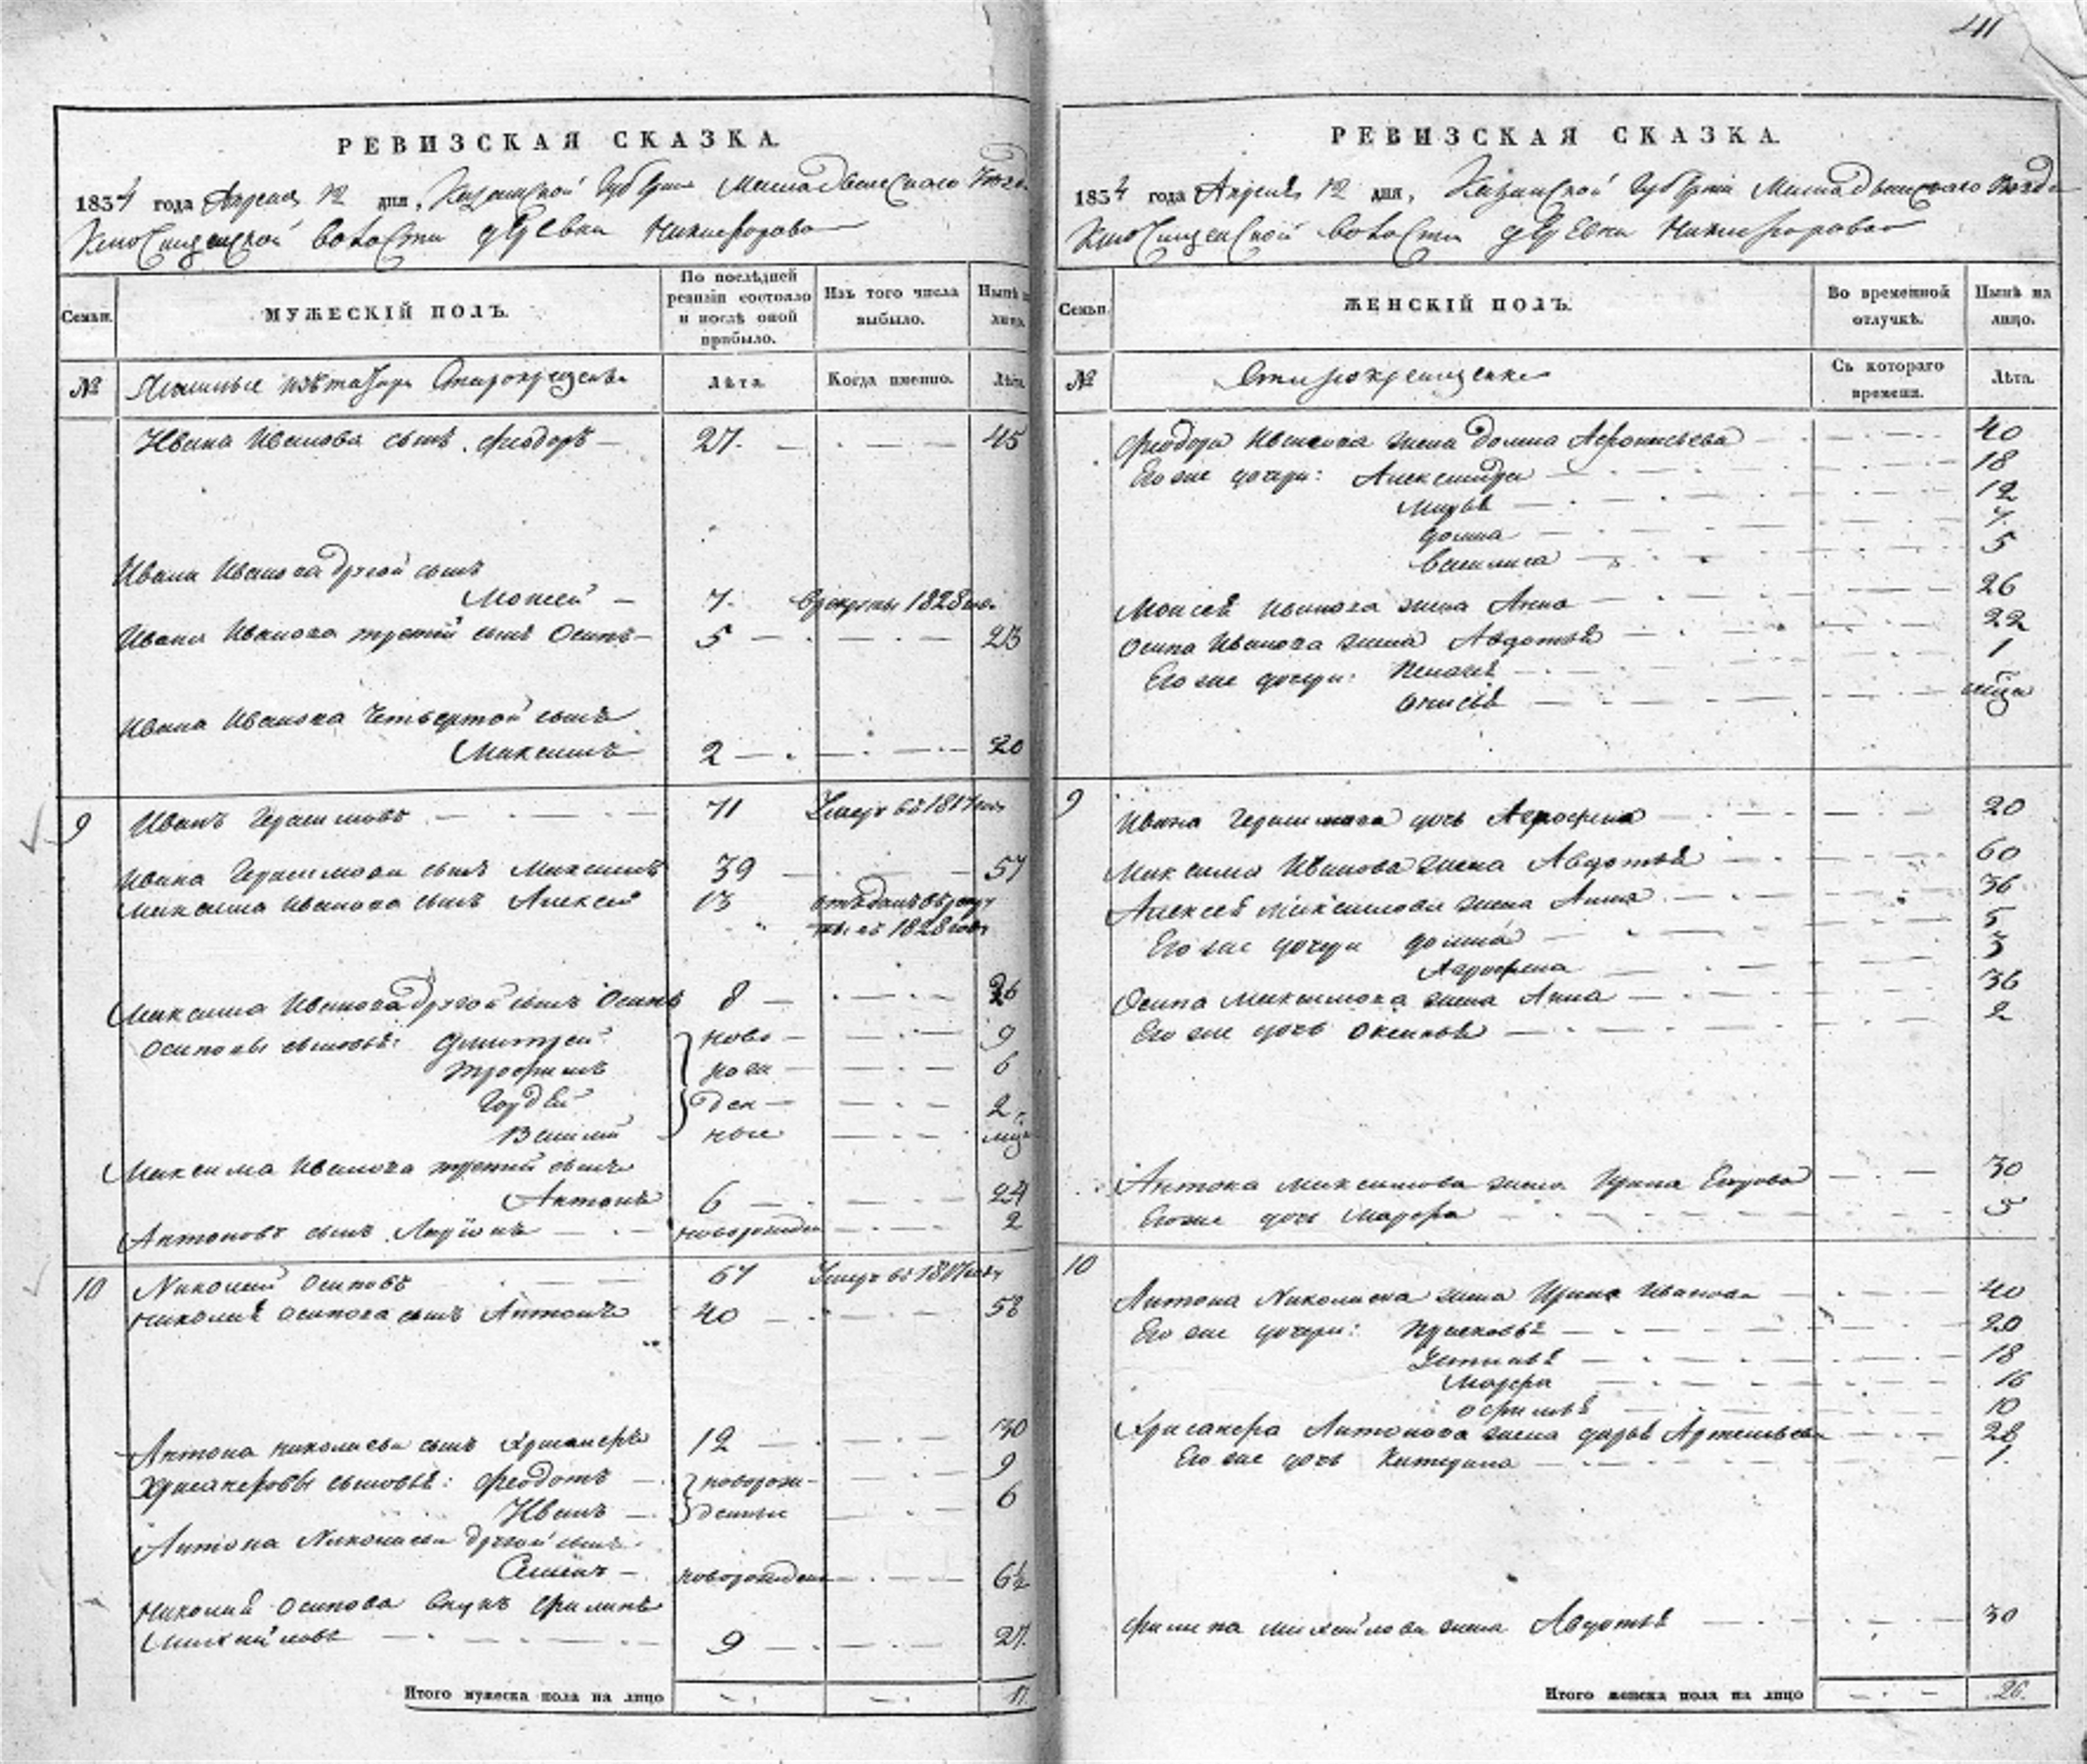 411
РЕВИЗСКАЯ СКАЗКА.
1834 года Апреля 12 дня, Казанской Губернии
волости деревни Никифорова
Семьи.
МУЖЕСКІЙ ПОЛЪ.
По послѣдней ревизіи состояло и послѣ оной прибыло.
Изъ того числа выбыло.
Нынѣ на лицо.
№
Лѣта.
Когда именно.
Лѣта.
Ивана Иванова сынъ Феодоръ 27. 45
Ивана Иванова другой сынъ
Моисей 7. 1828
Ивана Иванова третій сынъ Осипъ 5 23
Ивана Иванова четвертой сынъ
Максимъ 2 20
9 Иванъ Герасимовъ 71 Умеръ въ 1817
Ивана Герасимова сынъ Максимъ 39 57
Максима Иванова сынъ Алексей 13 отъданъ въ рекру
ты въ 1828
Максима Иванова другой сынъ Осипъ 8 26
Осиповы сыновья: Дмитрей ново 9
Трофимъ рож 6
Гордей ден 2
Василий ные
Максима Иванова третий сынъ
Антонъ 6 24
Антоновъ сынъ Ларионъ новорожден 2
10 Николай Осиповъ 67 Умеръ въ 1817
Николая Осипова сынъ Антонъ 40 58
Антона Николаева сынъ Хрисанфъ 12 30
Хрисанфовы сыновья: Феодотъ новорож 9
Иванъ денные 6
Антона Николаева другой сынъ
Семенъ новорожден 6½
Николая Осипова внукъ Филипъ
Михайловъ 9 27.
Итого мужеска пола на лицо 17.
РЕВИЗСКАЯ СКАЗКА.
1834 года Апреля 12 дня, Казанской Губерніи
волости деревни Никифорова
Семьи.
ЖЕНСКІЙ ПОЛЪ.
Во временной отлучкѣ.
Нынѣ на лицо.
№
Съ котораго времени.
Лѣта.
Феодора Иванова жена Домна Афонасьева 40
Его же дочери: Александра 18
Марья 12
Домна 7.
Василиса 5
Моисея Иванова жена Анна 26
Осипа Иванова жена Авдотья 22
Его же дочери: Пелагея 1
Анисья
9 Ивана Герасимова дочь Агрофена 20
Максима Иванова жена Авдотья 60
Алексея Максимова жена Анна 36
Его же дочери Домна 5
Агрофена 3
Осипа Максимова жена Анна 36
Его же дочь Оксинья 2
Антона Максимова жена Ирина Егорова 30
Его же дочь Марфа 5
10
Антона Николаева жена Ирина Иванова 40
Его же дочери: Прасковья 20
Устинья 18
Марфа 16
Офимья 10
Хрисанфа Антонова жена Дарья Артемьева 28
Его же дочь Катерина 1.
Филипа Михайлова жена Авдотья 30
Итого женска пола на лицо 26.